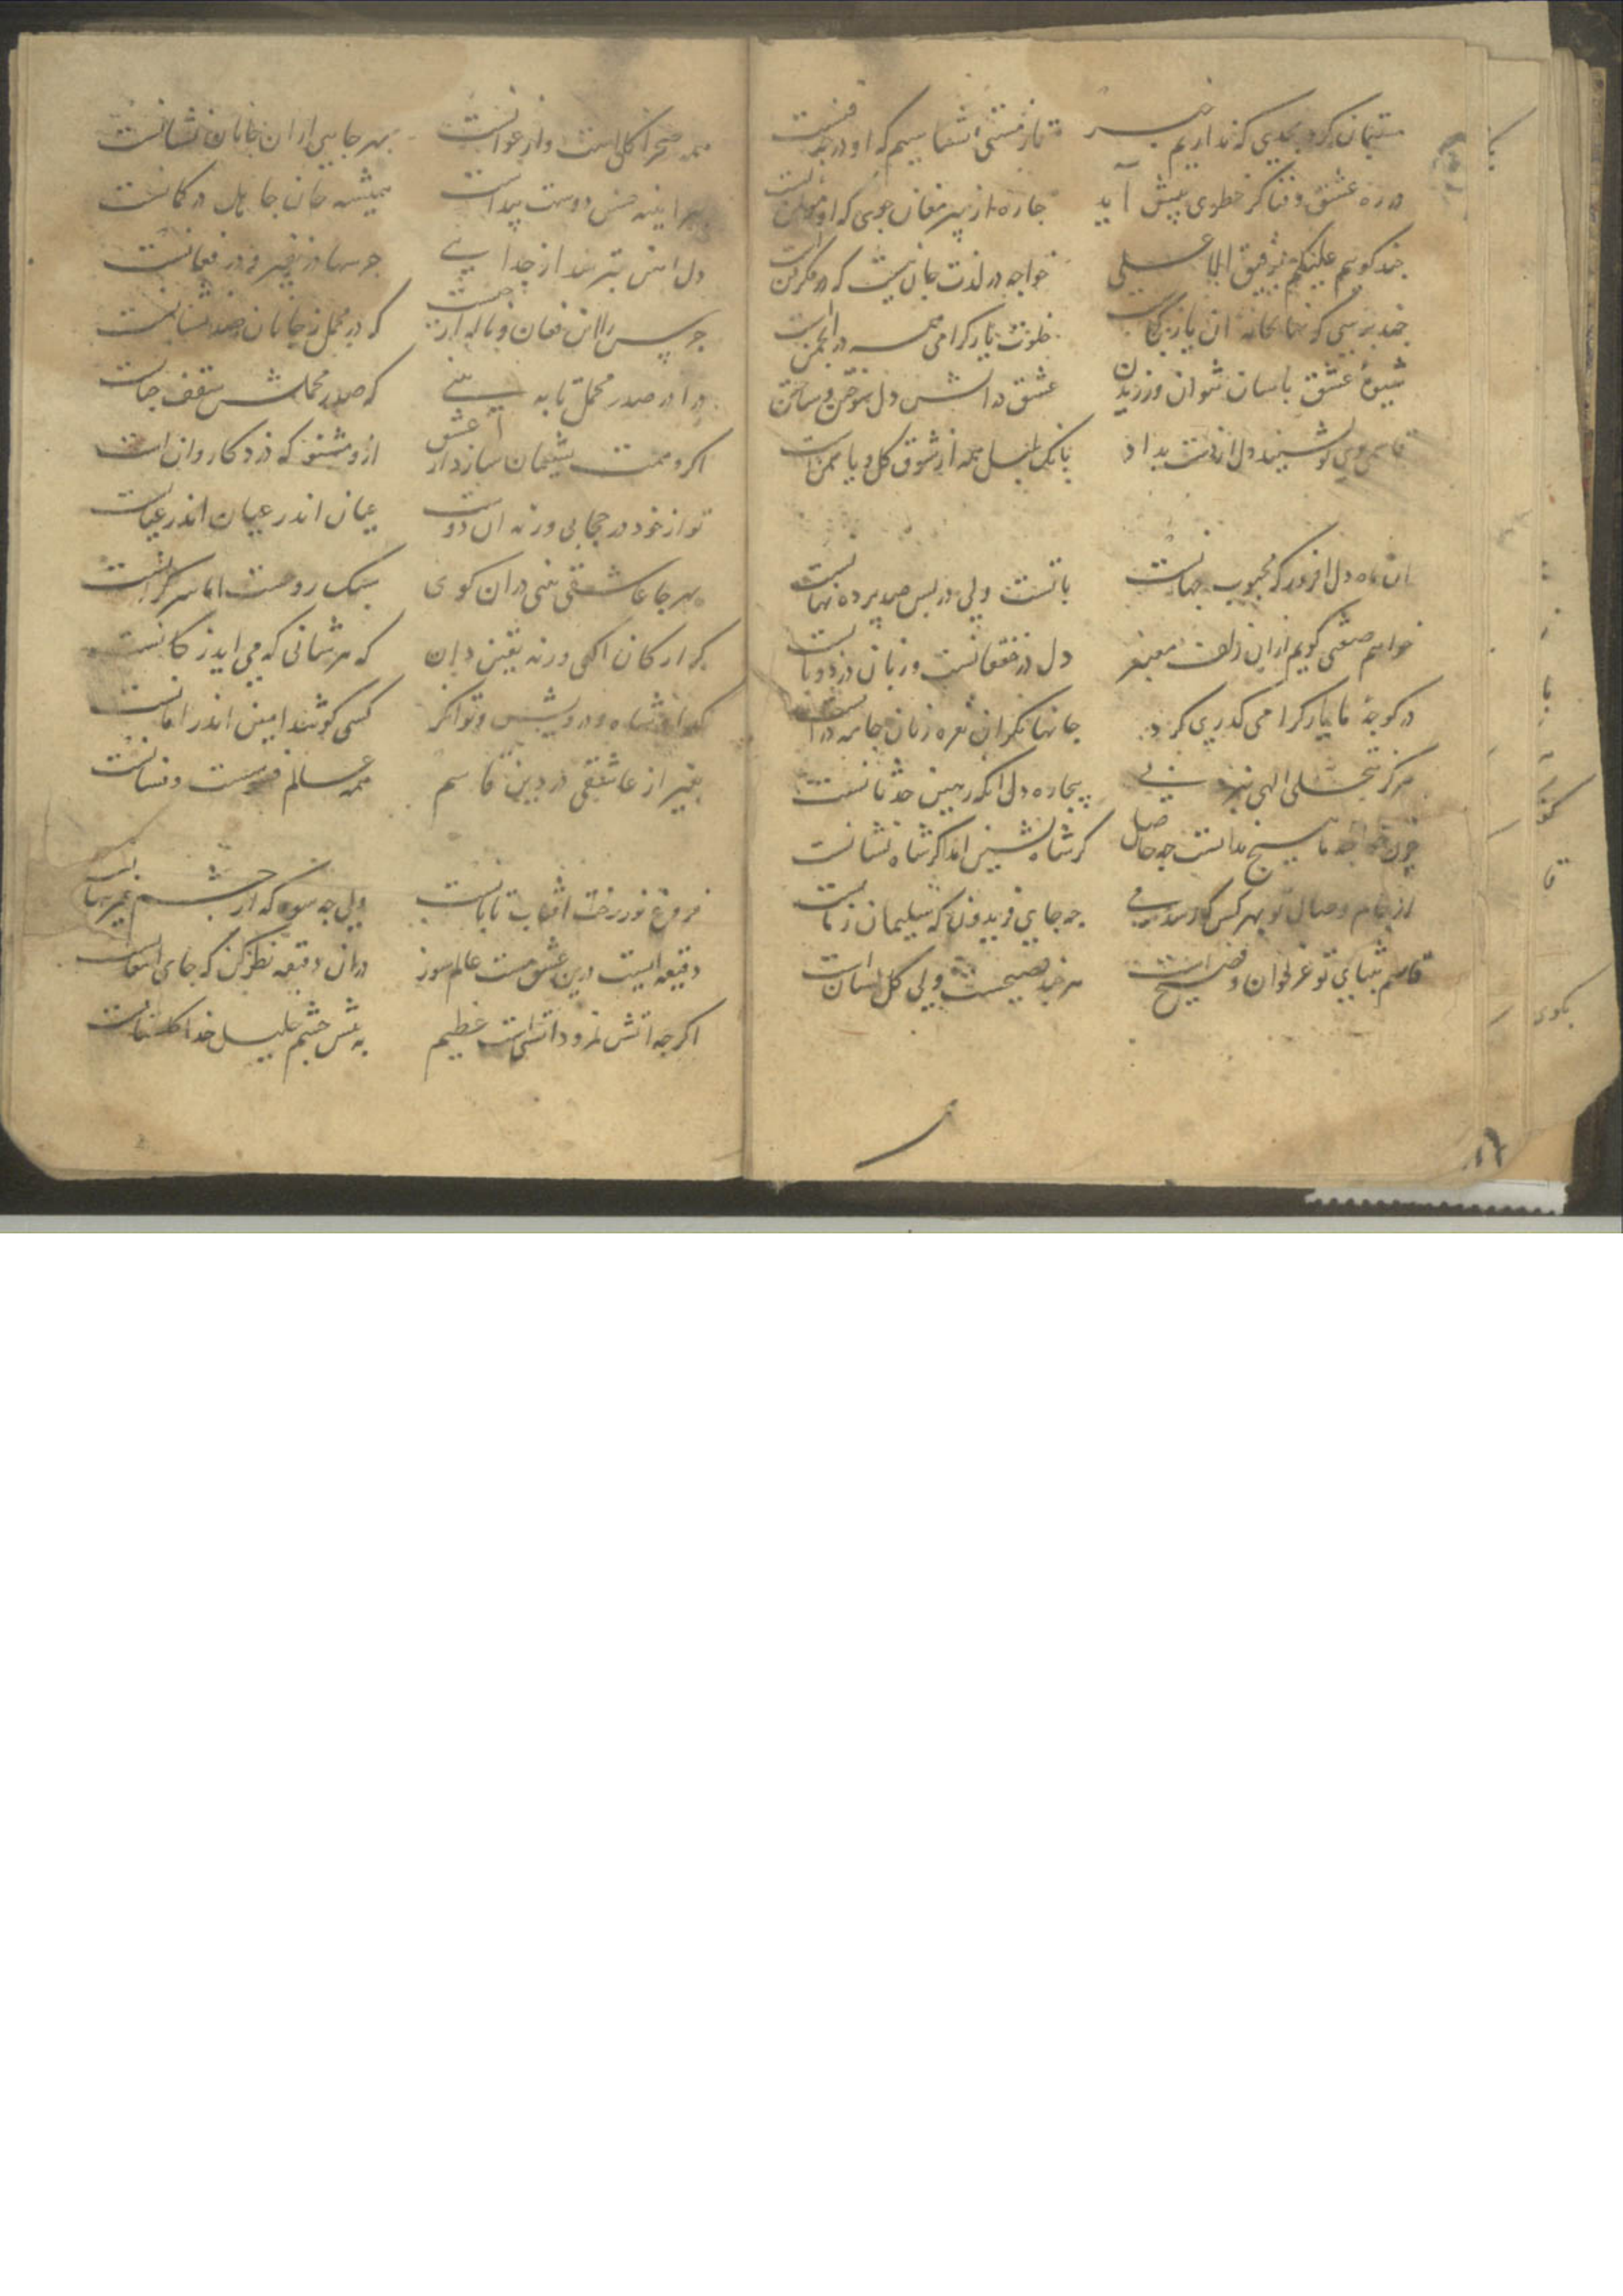 مستیمان کرد بحدی که نداریم خبر
تا ز مستی نشناسیم که او در چه فنست
در ره عشق و فنا گر خطری پیش آید
چاره از پیر مغان جوی که او مؤتمنست
چند گویم علیکم برفیق الاعلی
خواجه در لذت جان نیست که در فکر تنست
چند پرسی که نهانخانه آن یار کجاست
خلوت یار کرامی همه در انجمن است
شیوهٔ عشق باسان نتوان ورزیدن
عشق دل سوختن و ساختن
قاسمی روی تو دل از دست بداد
بانک بلبل همه از شوق کل و یاسمن است
آن ماه دل افروز که محبوب جهانست
با تست ولی در پس صد پرده نهانست
خواهم صفتی کویم ازان زلف معنبر
دل در خفقانست و زبان در دورانست
در کوچهٔ ما یار کرامی کذری کرد
جانها نکران نعره زنان جامه درانست
هرکز تجلی الهی نبرد پی
بیچاره دل انکه رهین حدثانست
چون خواجه ما هیچ ندانست چه حاصل
کر شاه نشین امد و کر شاه نشانست
از جام وصال تو بهر کس که رسد می
چه جای فریدون که سلیمان زمانست
قاسم بثنای تو غزلخوان و فصیح است
هر چند فصیحست ولی کل لسانست
همه صحرا کل است و ارغوانست
بهر جایی ازان جانان نشانست
بهر اینه حسن دوست پیداست
همیشه جان جاهل در کمانست
دل امن بترسد از جدایی
جرسها در نفیر و در فغانست
جرس را این فغان و ناله از چیست
که در محمل ز جانان صد نشانست
درا در صدر محمل تا به بینی
که صدر محملش سقف جهانست
اگر و همت پشیمان سازد از عشق
ازو مشنو که دزد کاروان است
تو از خود در حجابی ورنه ان دوست
عیان اندر عیان اندر عیانست
بهر جا عاشقی بینی دران کوی
سبک روحست اما سر کرانست
کر ارکان اکهی ورنه یقین دان
که هر شانی که می اید ز کانست
کدا و شاه و درویش و توانکر
کسی کو شد امین اندر امانست
بغیر از عاشقی در دین قاسم
همه عالم فسوست و فسانست
فروغ نور رخت افتاب تابانست
ولی چه سود که از چشم غیر پنهانست
دقیقه ایست درین عشق مست عالم سوز
دران دقیقه نظر کن که جای امعانست
اگرچه اتش نمرود اتشی است عظیم
به پیش چشم خلیل خدا کلستانست